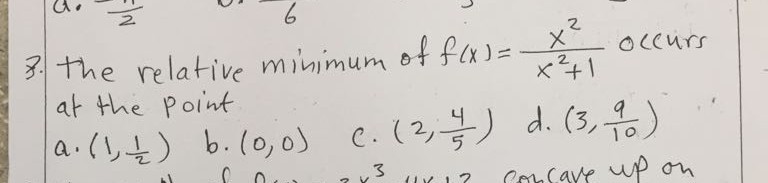 a. π/2 6
3. the relative minimum of f(x) = x²/(x²+1) occurs
at the point
a. (1, 1/2) b. (0,0) c. (2, 4/5) d. (3, 9/10)
3 concave up on